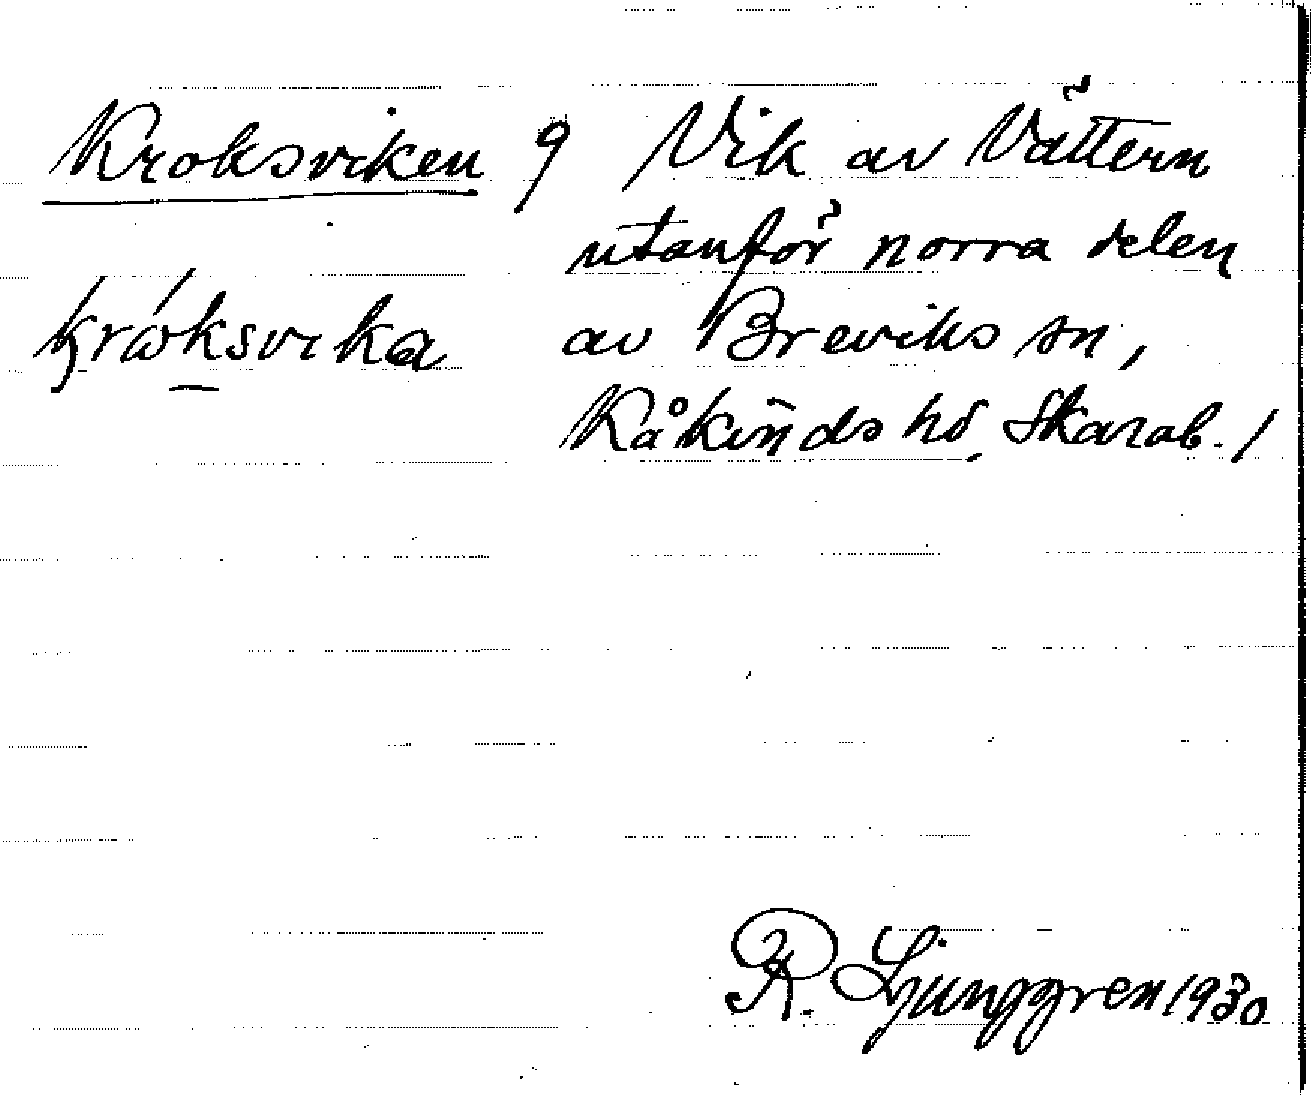 Kroksviken
Vik av Vättern
utanför norra delen
kråksvika
av Breviks sn,
Kåkinds hd, Skarab. /
R. Ljunggren 1930